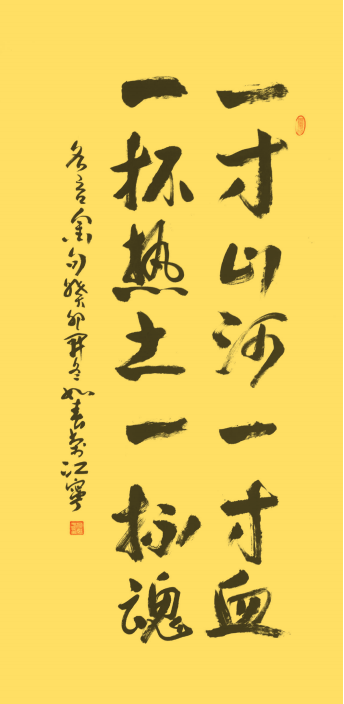 一寸山河一寸血
一抔热土一抔魂
名言金句癸卯冬如春於江寧